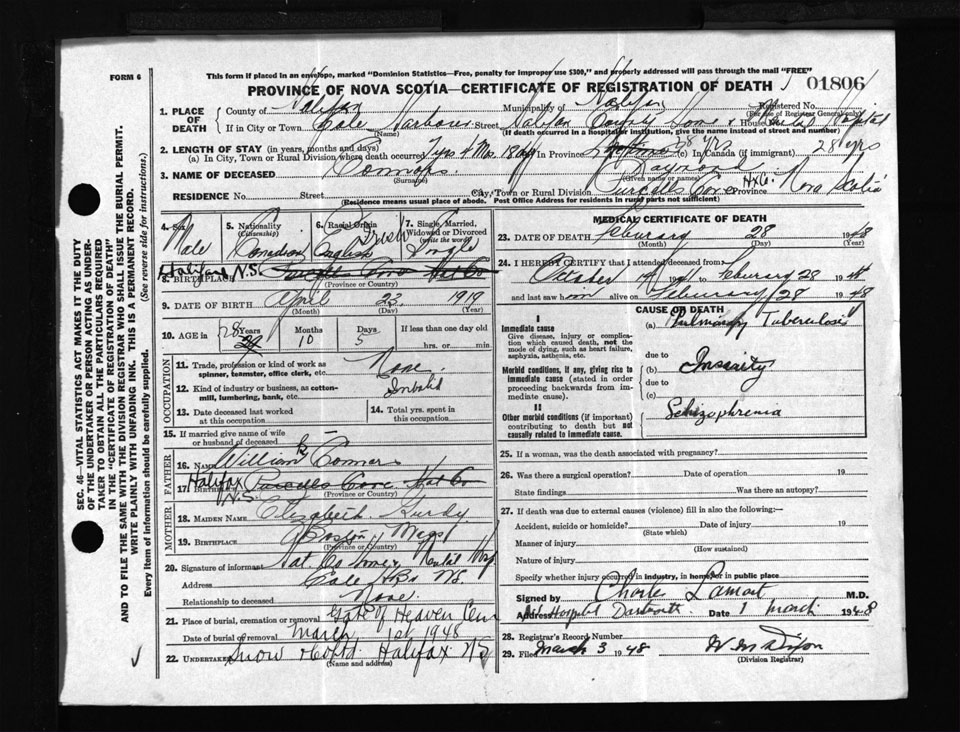 FORM 6
This form if placed in an envelope, marked "Dominion Statistics—Free, penalty for improper use $300," and properly addressed will pass through the mail "FREE"
PROVINCE OF NOVA SCOTIA—CERTIFICATE OF REGISTRATION OF DEATH
01806
1. PLACE OF DEATH
County of Halifax Municipality of Halifax Registered No.
(For use of Registrar General only)
If in City or Town Cole Harbour Street Halifax County Home & Mental Hospital House No.
(Name) (If death occurred in a hospital or institution, give the name instead of street and number)
2. LENGTH OF STAY (in years, months and days)
(a) In City, Town or Rural Division where death occurred 7 yrs 4 Mos 18 dys In Province 28 yrs (c) In Canada (if immigrant) 28 yrs
3. NAME OF DECEASED Connors Raymond
(Surname) (Given name or name)
RESIDENCE No. Street City, Town or Rural Division Purcells Cove Hx Co. Province Nova Scotia
(Residence means usual place of abode. Post Office Address for residents in rural parts not sufficient)
4. Sex Male
5. Nationality (Citizenship) Canadian
6. Racial Origin English Irish
7. Single, Married, Widowed or Divorced (write the word) Single
8. BIRTHPLACE Halifax N.S. Purcells Cove Hat Co
(Province or Country)
9. DATE OF BIRTH April 23 1919
(Month) (Day) (Year)
10. AGE in 28 29 Years 10 Months 5 Days If less than one day old
hrs. or min.
OCCUPATION
11. Trade, profession or kind of work as spinner, teamster, office clerk, etc. None
12. Kind of industry or business, as cotton-mill, lumbering, bank, etc. Invalid
13. Date deceased last worked at this occupation
14. Total yrs. spent in this occupation
15. If married give name of wife or husband of deceased –
FATHER
16. NAME William Connors
17. BIRTHPLACE Halifax N.S. Purcells Cove Hat Co
(Province or Country)
MOTHER
18. MAIDEN NAME Elizabeth
19. BIRTHPLACE Boston Mass
(Province or Country)
20. Signature of informant Hat Co Home Mental Hosp
Address Cole Hbr NS
Relationship to deceased None
21. Place of burial, cremation or removal Gate of Heaven Cem
Date of burial or removal March 1st 1948
22. Undertaker Snow & Co Ltd Halifax NS
(Name and address)
MEDICAL CERTIFICATE OF DEATH
23. DATE OF DEATH February 28 1948
(Month) (Day)
24. I HEREBY CERTIFY that I attended deceased from
October to February 28 1948
and last saw alive on February 28 1948
CAUSE OF DEATH
I
Immediate cause
Give disease, injury or complication which caused death, not the mode of dying, such as heart failure, asphyxia, asthenia, etc.
(a) Pulmonary Tuberculosis
due to
Morbid conditions, if any, giving rise to immediate cause (stated in order proceeding backwards from immediate cause).
(b) Insanity
due to
(c)
II
Other morbid conditions (if important) contributing to death but not causally related to immediate cause.
Schizophrenia
25. If a woman, was the death associated with pregnancy?
26. Was there a surgical operation? Date of operation 19
State findings Was there an autopsy?
27. If death was due to external causes (violence) fill in also the following:
Accident, suicide or homicide? Date of injury 19
(State which)
Manner of injury
(How sustained)
Nature of injury
Specify whether injury occurred in industry, in home, or in public place
Signed by Charles M.D.
Address Hospital Dartmouth Date 1 March 1948
28. Registrar's Record Number
29. Filed March 3 1948 W M Dixon
(Division Registrar)
SEC. 46—VITAL STATISTICS ACT MAKES IT THE DUTY OF THE UNDERTAKER OR PERSON ACTING AS UNDERTAKER TO OBTAIN ALL THE PARTICULARS REQUIRED IN THE "CERTIFICATE OF REGISTRATION OF DEATH" AND TO FILE THE SAME WITH THE DIVISION REGISTRAR WHO SHALL ISSUE THE BURIAL PERMIT.
WRITE PLAINLY WITH UNFADING INK. THIS IS A PERMANENT RECORD.
Every item of information should be carefully supplied. (See reverse side for instructions.)